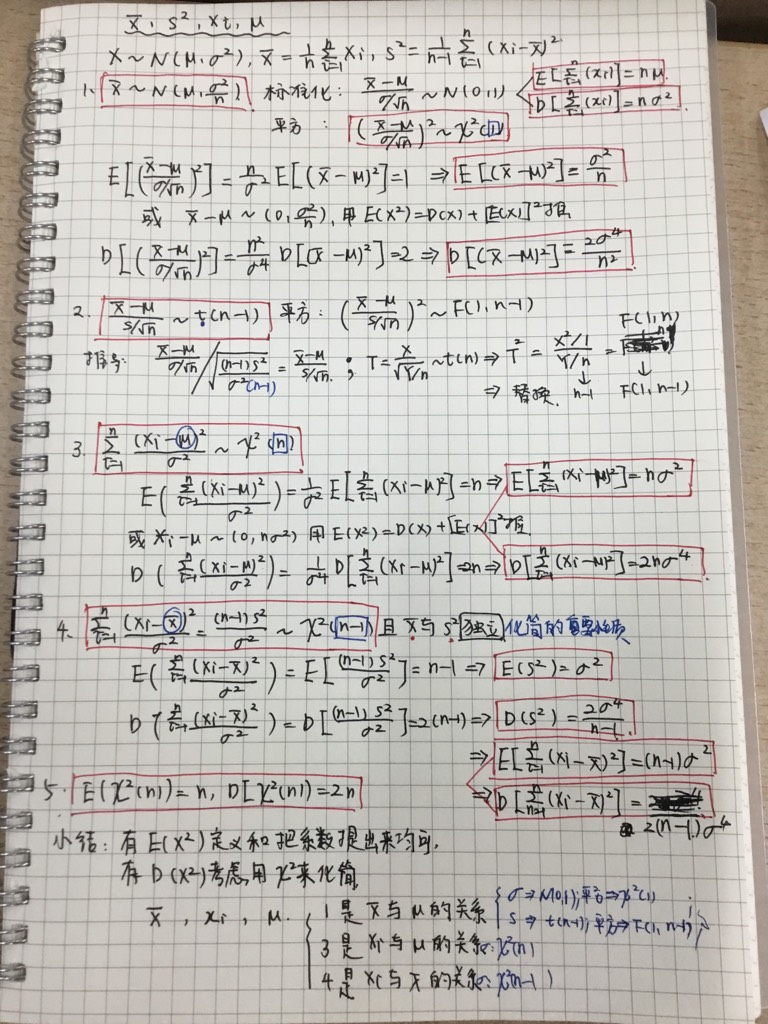 x̄, s², xi, μ
X ~ N(μ, σ²), x̄ = 1/n Σ_{i=1}^{n} Xi, s² = 1/(n-1) Σ_{i=1}^{n} (Xi - x̄)²
1. x̄ ~ N(μ, σ²/n) 标准化: (x̄-μ)/(σ/√n) ~ N(0,1) E[Σ_{i=1}^{n}(xi)] = nμ.
D[Σ_{i=1}^{n}(xi)] = nσ²
平方: ((x̄-μ)/(σ/√n))² ~ χ²(1)
E[((x̄-μ)/(σ/√n))²] = n/σ² E[(x̄-μ)²] = 1 ⇒ E[(x̄-μ)²] = σ²/n
或 x̄-μ ~ (0, σ²/n), 用 E(X²) = D(X) + [E(X)]² 推
D[((x̄-μ)/(σ/√n))²] = n²/σ⁴ D[(x̄-μ)²] = 2 ⇒ D[(x̄-μ)²] = 2σ⁴/n²
2. (x̄-μ)/(s/√n) ~ t(n-1) 平方: ((x̄-μ)/(s/√n))² ~ F(1, n-1)
推导: (x̄-μ)/(σ/√n) / √((n-1)s²/σ²(n-1)) = (x̄-μ)/(s/√n); T = X/√(Y/n) ~ t(n) ⇒ T² = (X²/1)/(Y/n) = F(1,n)
⇒ 替换. ↓ n-1 ↓ F(1, n-1)
3. Σ_{i=1}^{n} (Xi-μ)²/σ² ~ χ²(n)
E(Σ_{i=1}^{n}(Xi-μ)²/σ²) = 1/σ² E[Σ_{i=1}^{n}(Xi-μ)²] = n ⇒ E[Σ_{i=1}^{n}(Xi-μ)²] = nσ²
或 Xi-μ ~ (0, nσ²) 用 E(X²) = D(X) + [E(X)]² 推
D(Σ_{i=1}^{n}(Xi-μ)²/σ²) = 1/σ⁴ D[Σ_{i=1}^{n}(Xi-μ)²] = 2n ⇒ D[Σ_{i=1}^{n}(Xi-μ)²] = 2nσ⁴
4. Σ_{i=1}^{n} (Xi-x̄)²/σ² = (n-1)s²/σ² ~ χ²(n-1) 且 x̄ 与 s² 独立 化简的重要性质
E(Σ_{i=1}^{n}(Xi-x̄)²/σ²) = E[(n-1)s²/σ²] = n-1 ⇒ E(s²) = σ²
D(Σ_{i=1}^{n}(Xi-x̄)²/σ²) = D[(n-1)s²/σ²] = 2(n-1) ⇒ D(s²) = 2σ⁴/(n-1)
⇒ E[Σ_{i=1}^{n}(Xi-x̄)²] = (n-1)σ²
5. E(χ²(n)) = n, D[χ²(n)] = 2n ⇒ D[Σ(Xi-x̄)²] =
2(n-1)σ⁴
小结: 有 E(X²) 定义和把系数提出来均可,
有 D(X²) 考虑用 χ² 来化简
x̄, xi, μ. { 1 是 x̄ 与 μ 的关系 { σ ⇒ N(0,1); 平方 ⇒ χ²(1);
s ⇒ t(n-1); 平方 ⇒ F(1, n-1);
3 是 xi 与 μ 的关系: χ²(n)
4 是 xi 与 x̄ 的关系: χ²(n-1)